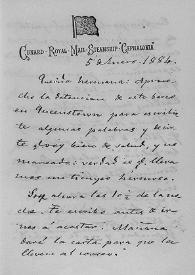 CUNARD ROYAL MAIL STEAMSHIP CEPHALONIA
5 de Enero. 1884.
Querida hermana: Aprove-
cho la detencion de este barco
en Queenstown para escribir-
te algunas palabras y decir-
te estoy bien de salud, y no
mareado: verdad es q. lleva-
mos un tiempo hermoso.
Son ahora las 10½ de la no-
che. te escribo antes de ir-
nos a acostar. Mañana
daré la carta para que la
lleven al correo.